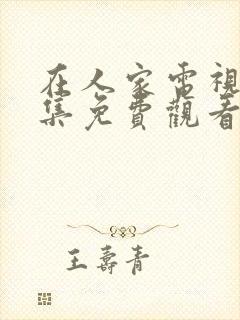 在人家電視
集免費觀看
王壽青